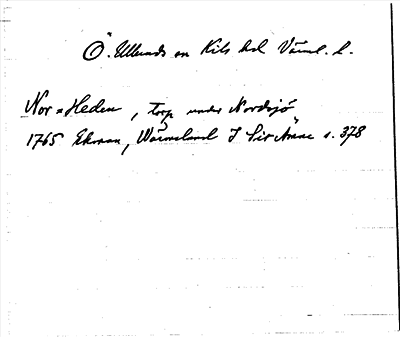 Ö. Ullerud sn Kils hd Värml. l.
Nor=Heden, torp under Nordsjö
1765 Ekman, Wärmeland I s. 378